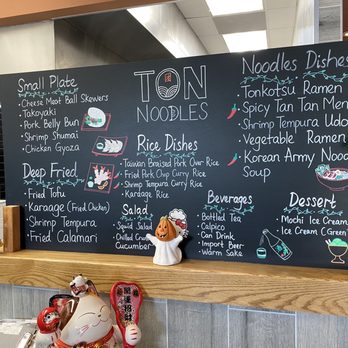 TON
NOODLES
Small Plate
Cheese Meat Ball Skewers
Takoyaki
Pork Belly Bun
Shrimp Shumai
Chicken Gyoza
Deep Fried
Fried Tofu
Karaage (Fried Chicken)
Shrimp Tempura
Fried Calamari
Rice Dishes
Taiwan Braised Pork Over Rice
Fried Pork Chop Curry Rice
Shrimp Tempura Curry Rice
Karaage Rice
Salad
Squid Salad
Chilled
Cucumber
Beverages
Bottled Tea
Calpico
Can Drink
Import Beer
Warm Sake
Noodles Dishes
Tonkotsu Ramen
Spicy Tan Tan Men
Shrimp Tempura Udo
Vegetable Ramen
Korean Army Nood
Soup
Dessert
Mochi Ice Cream
Ice Cream (Green